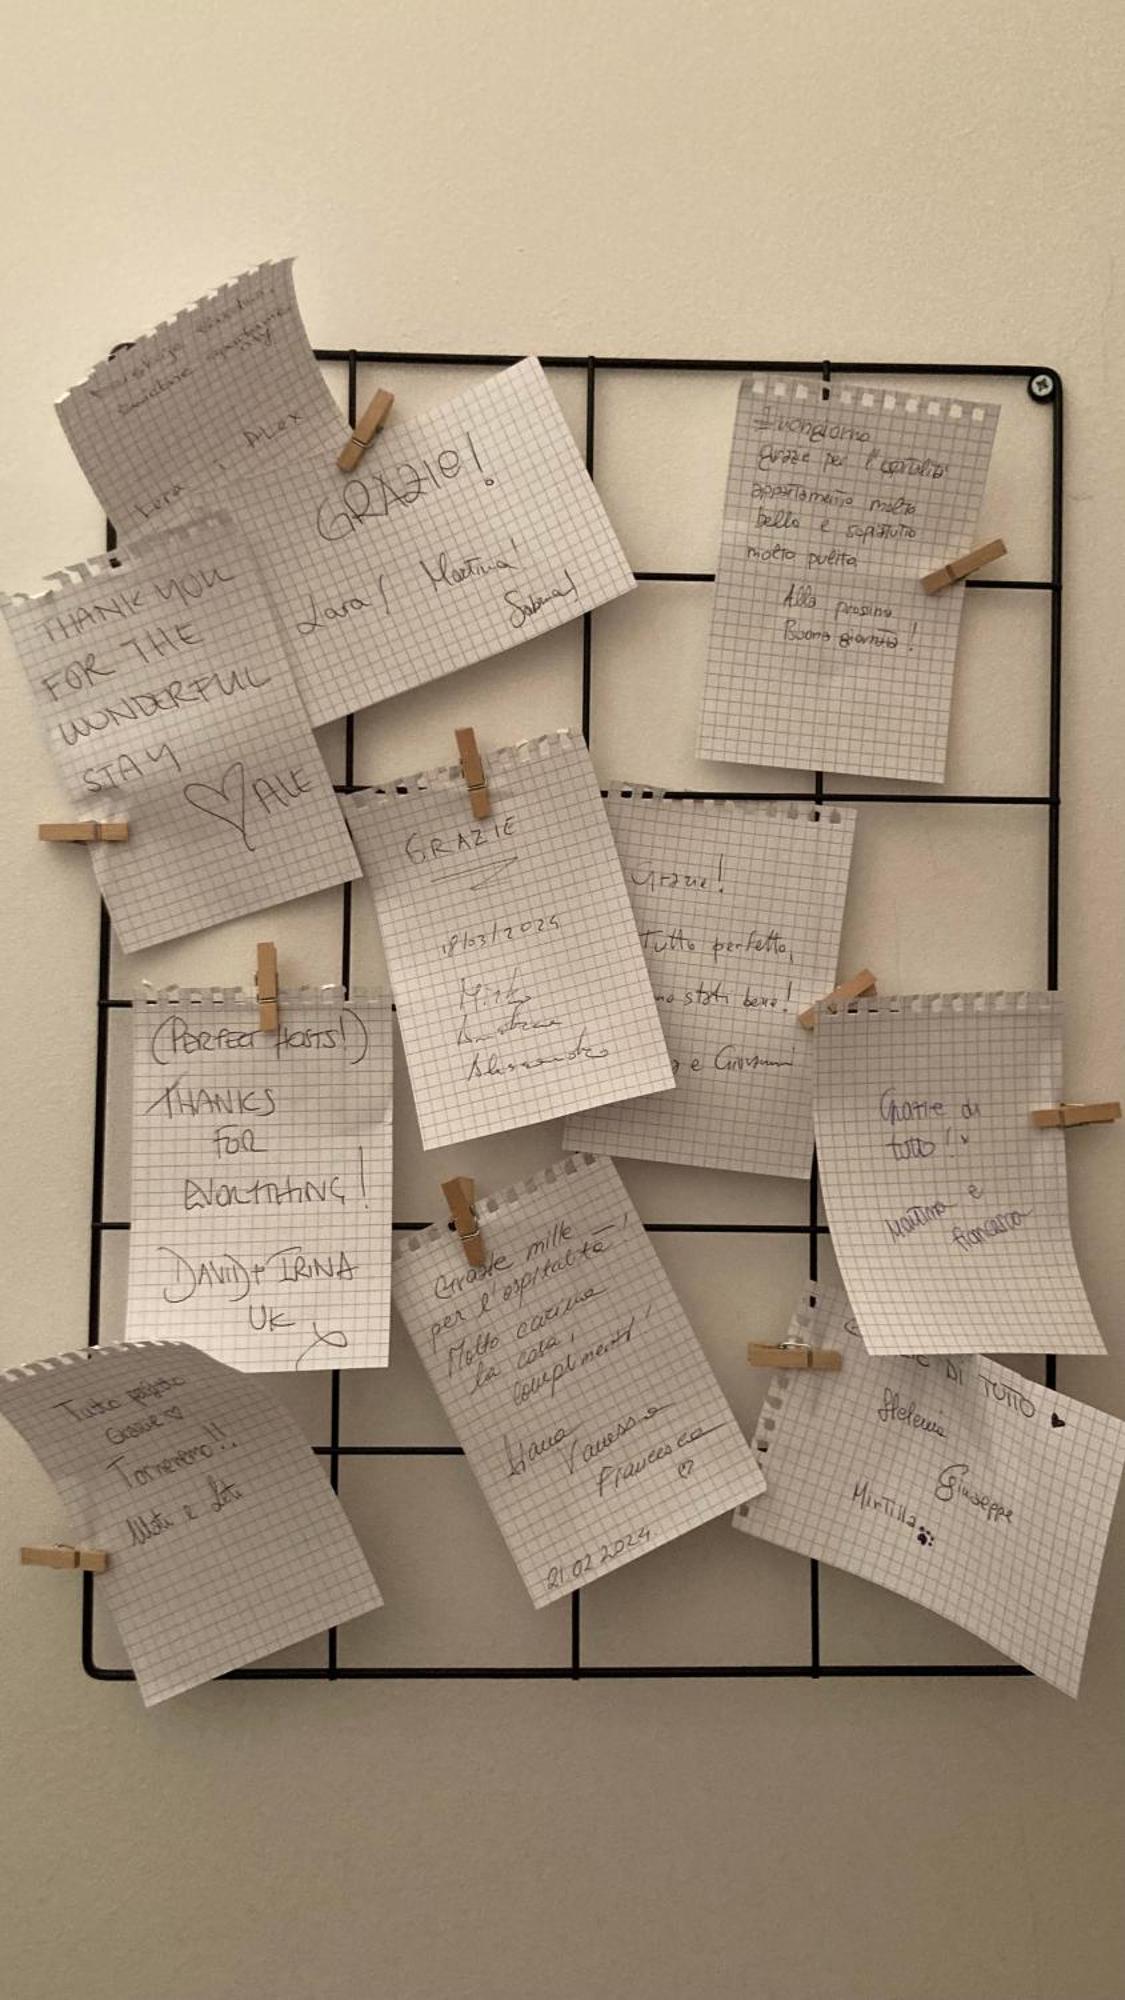 Alex
GRAZIE!
Lara! Martina!
Sabina!
Buongiorno
grazie per l'ospitalità
appartamento molto
bello e sopratutto
molto pulita
Alla prossima
Buona giornata!
THANK YOU
FOR THE
WONDERFUL
STAY
♡ ALE
GRAZIE
18/03/2024
Mirko
Alessandro
Grazie!
Tutto perfetto,
no stati bene!
e Giovanni
(PERFECT HOSTS!)
THANKS
FOR
EVERYTHING!
DAVID + IRINA
UK
X
Grazie di
tutto!
Martina e
Francesca
Grazie mille
per l'ospitalità!
Molto carina
la casa,
complimenti!
Vanessa
Francesca
♡
21.02.2024
DI TUTTO ♥
Stefania
Giuseppe
Mirtilla
Tutto perfetto
Grazie ♡
Torneremo!!
e